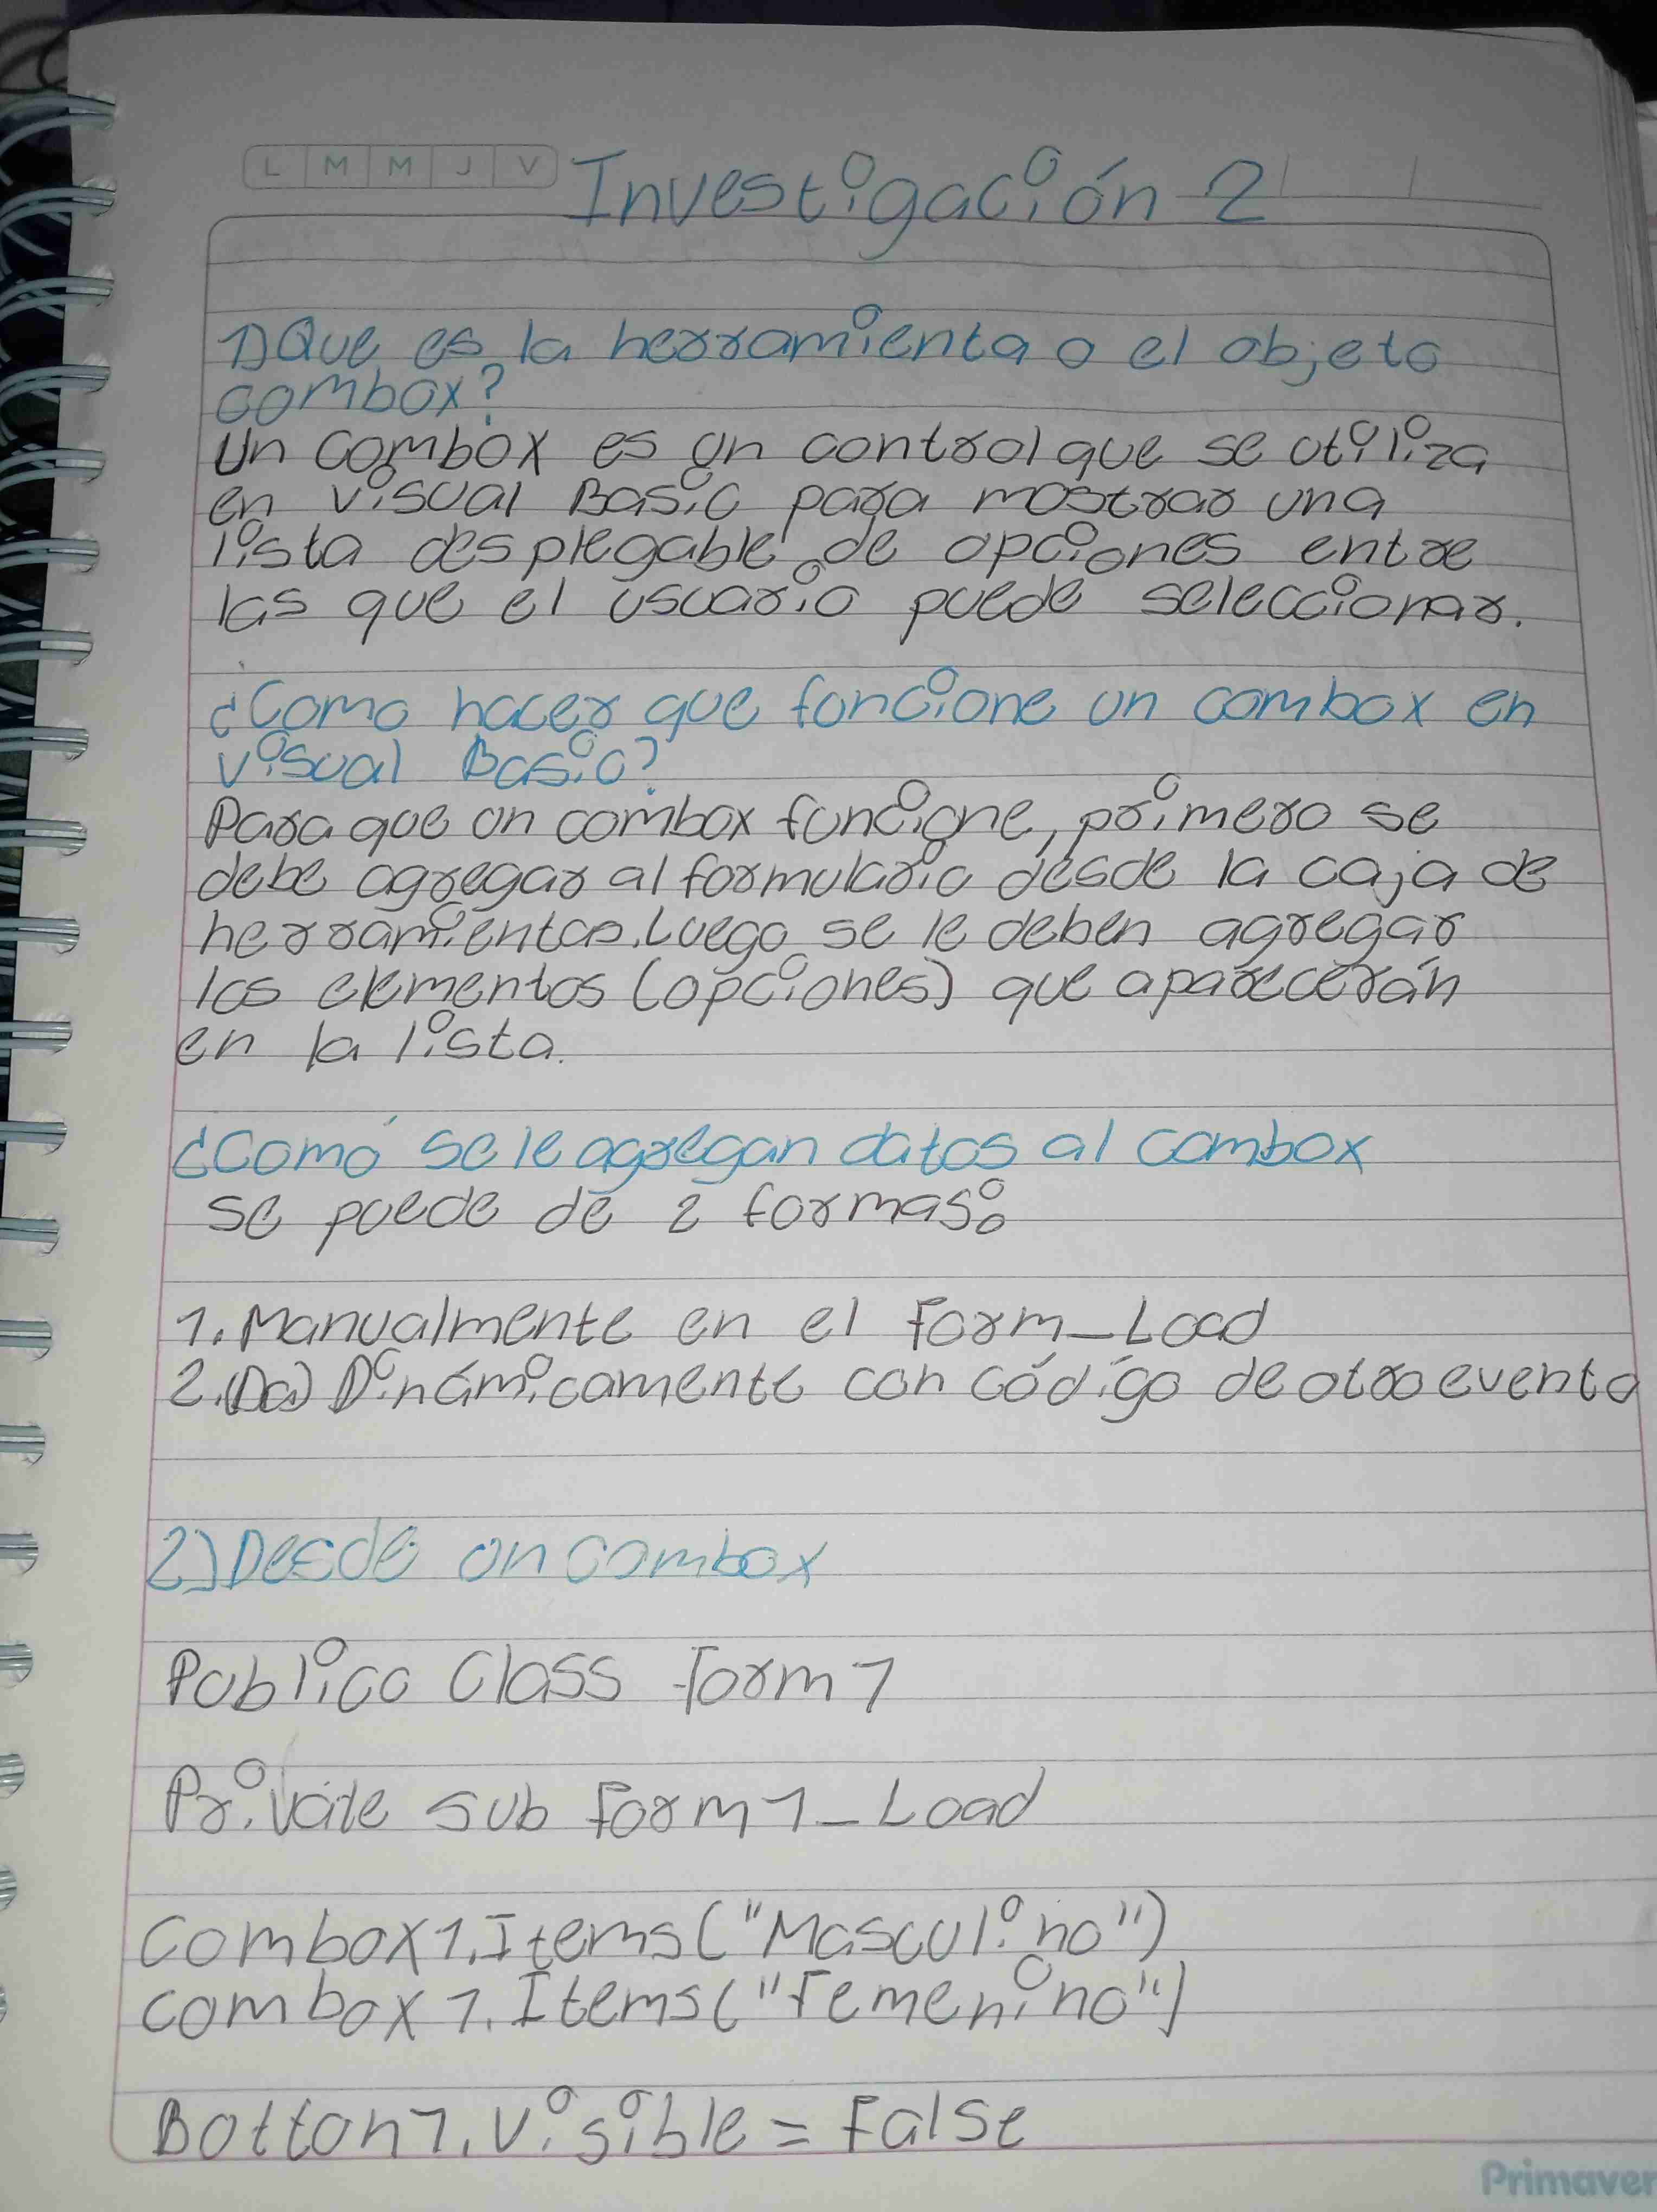 L M M J V
Investigación 2
1) Que es la herramienta o el objeto
combox?
Un combox es un control que se utiliza
en visual Basic para mostrar una
lista desplegable de opciones entre
las que el usuario puede seleccionar.
¿Como hacer que funcione un combox en
visual Basic?
Para que un combox funcione, primero se
debe agregar al formulario desde la caja de
herramientas. Luego se le deben agregar
los elementos (opciones) que aparecerán
en la lista.
¿Como se le agregan datos al combox
se puede de 2 formas:
1. Manualmente en el Form_Load
2. (Da) Dinámicamente con código de otro evento
2) Desde un combox
Publico Class form 1
Private sub Form 1_Load
Combox 1. Items ("Masculino")
combox 1. Items ("Femenino")
Botton 1. visible = False
Primaver